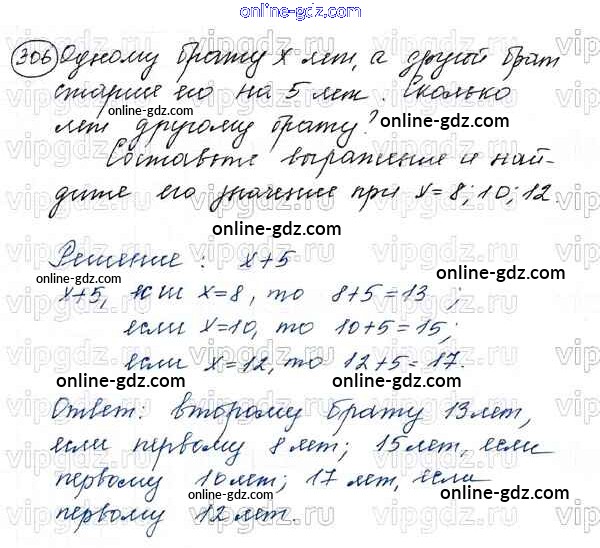 online-gdz.com
306 Одному брату x лет, а другой брат
старше его на 5 лет. Сколько
online-gdz.com
лет другому брату?
Составьте выражение и най-
дите его значение при x=8; 10; 12.
Решение: x+5
online-gdz.com
x+5, если x=8, то 8+5=13;
если x=10, то 10+5=15;
если x=12, то 12+5=17.
online-gdz.com online-gdz.com
Ответ: второму брату 13 лет,
если первому 8 лет; 15 лет, если
первому 10 лет; 17 лет, если
online-gdz.com
первому 12 лет.